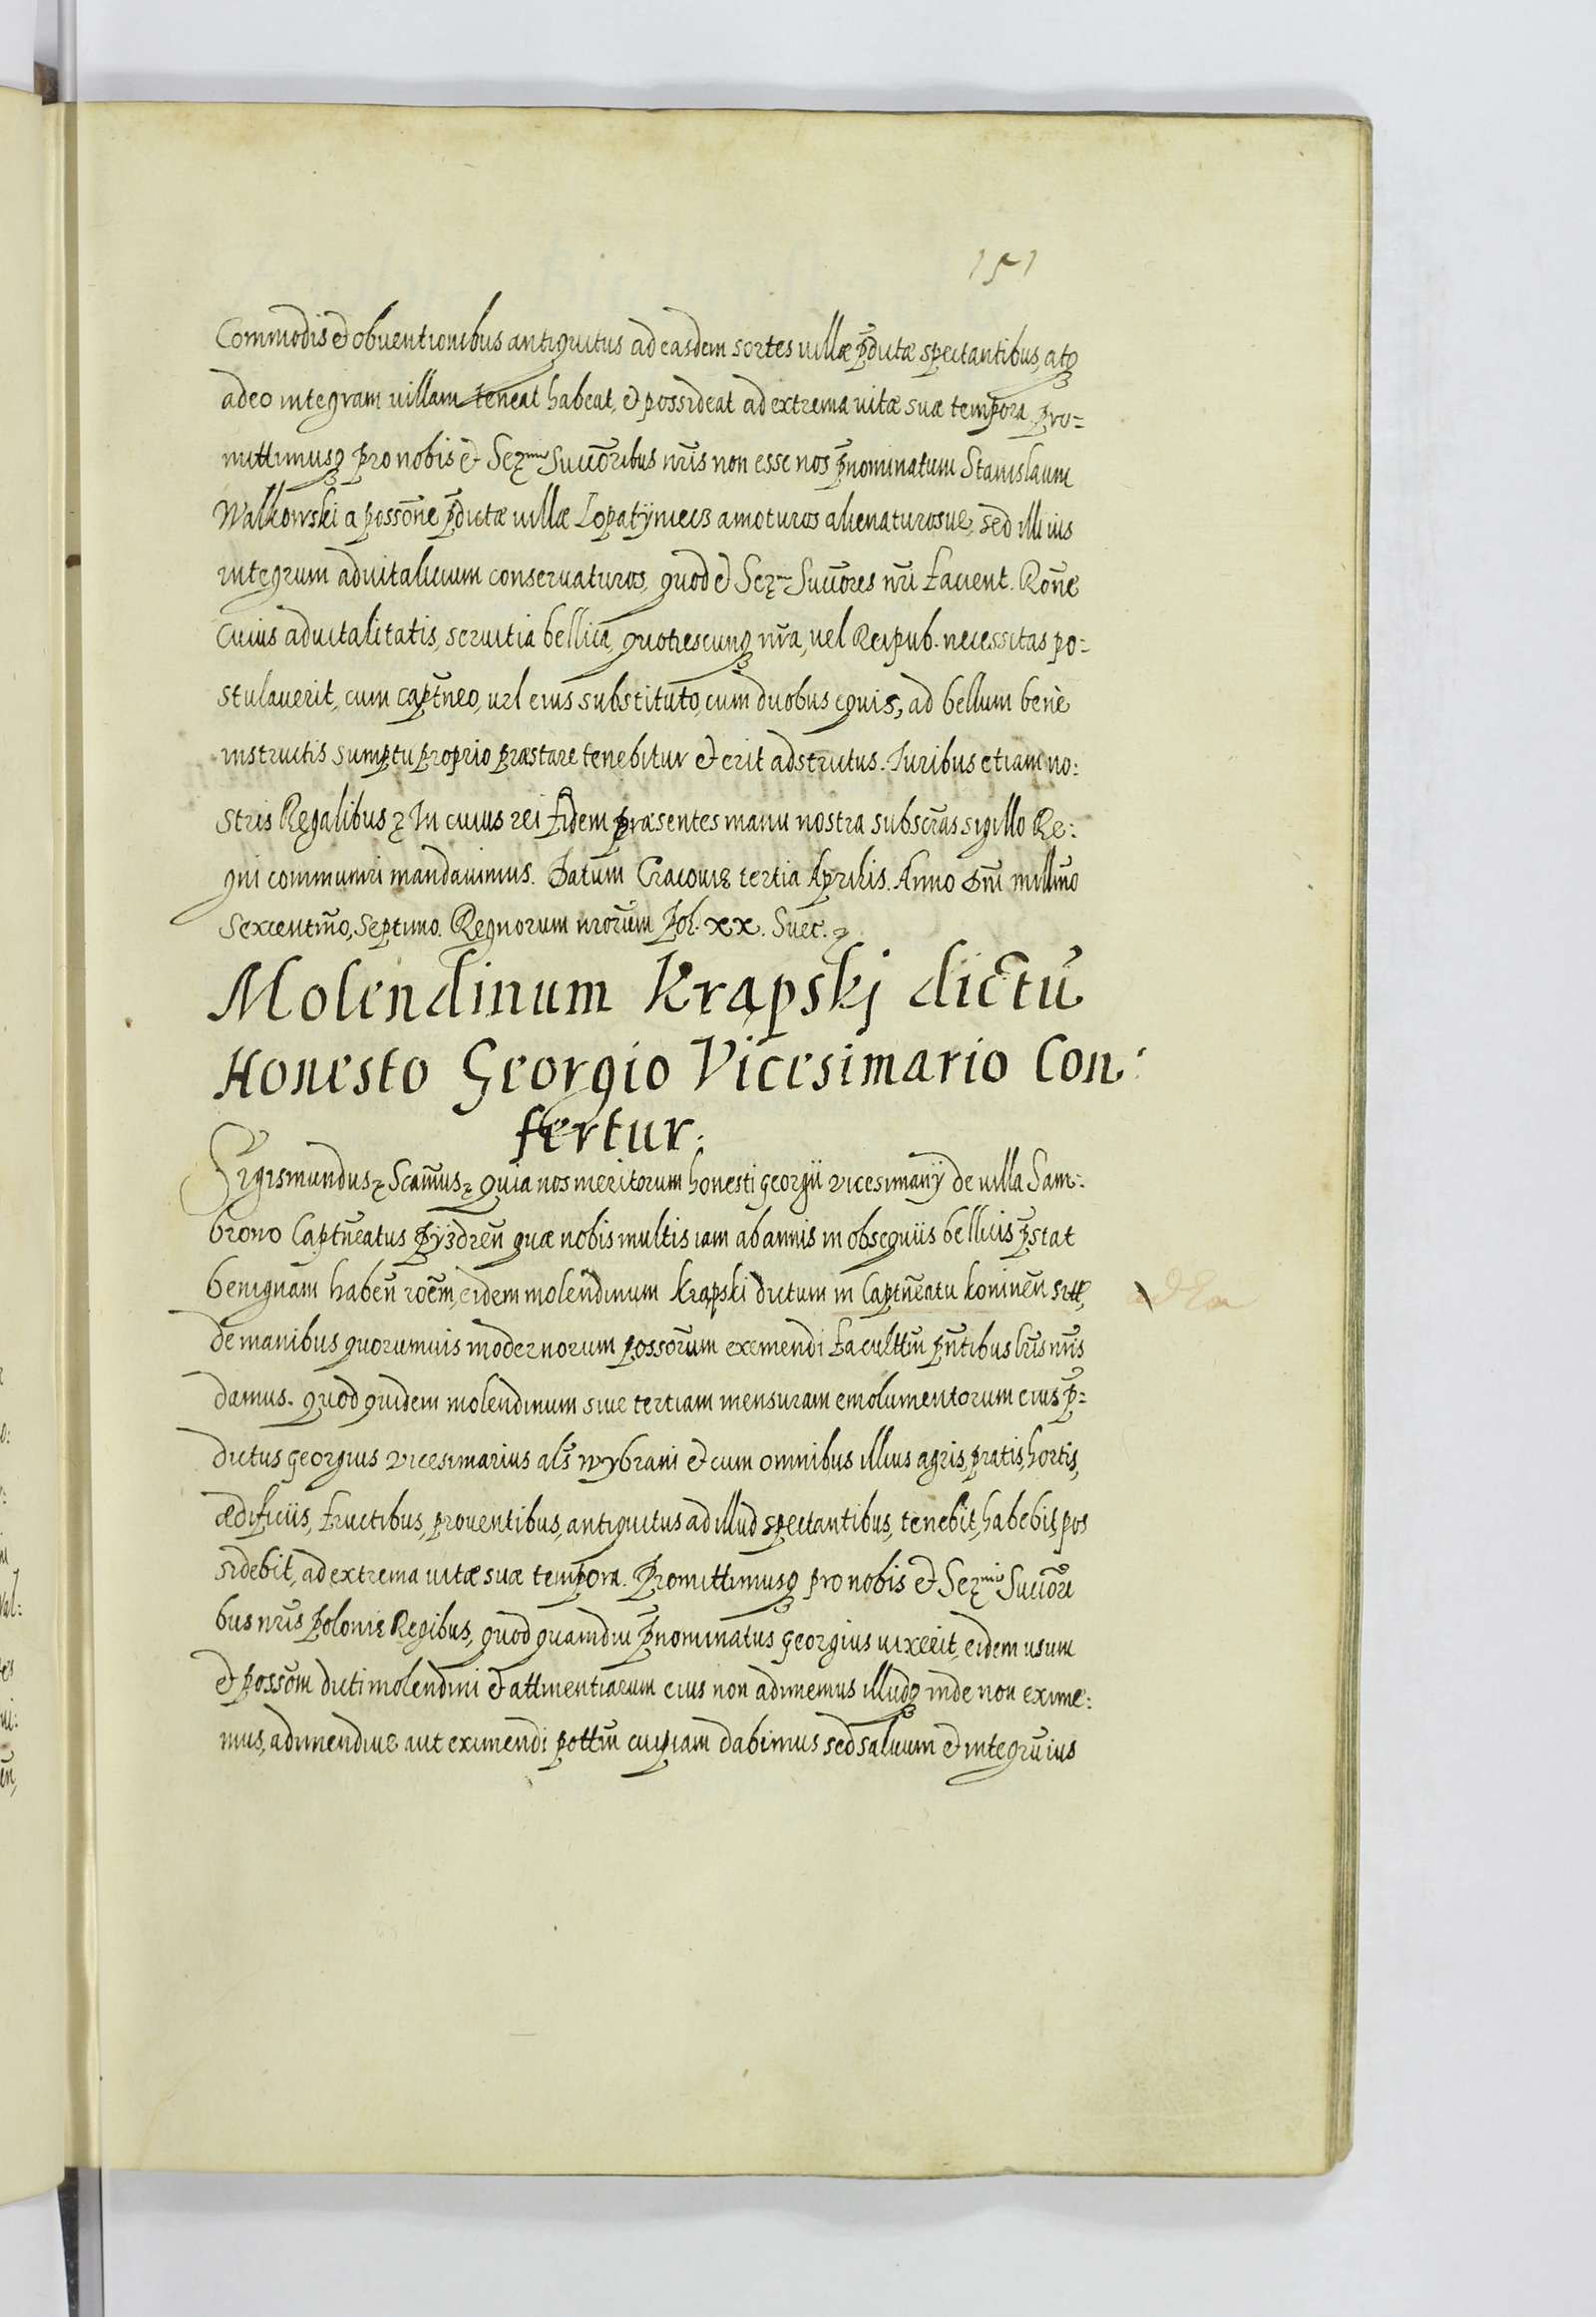 151
Commodis et obuentionibus antiquitus ad easdem sortes uillæ p̃dictæ spectantibus, atq;
adeo integram uillam teneat habeat, et possideat ad extrema uitæ suæ tempora. Pro=
mittimusq; pro nobis et Ser.mis Succõribus nr̃is non esse nos p̃nominatum Stanislaum
Walkowski a possõne p̃dictæ uillæ Lopatÿniecz amoturos alienaturosue, sed illi ius
integrum aduitalicium conseruaturos, quod et Ser.mi Succõres nr̃i facient. Rõne
Cuius aduitalitatis, seruitia bellica, quotiescunq; nr̃a, uel Reipub. necessitas po=
stulauerit, cum captñeo, uel eius substituto, cum duobus equis, ad bellum benè
instructis sumptu proprio præstare tenebitur et erit adstrictus. Iuribus etiam no:
stris Regalibus etc. In cuius rei fidem præsentes manu nostra subscr̃as sigillo Re:
gni communiri mandauimus. Datum Cracouiæ tertia Aprilis. Anno Dñi millm̃o
sexcentm̃o, septimo. Regnorum nrõrum Pol. xx. Suec. etc.
Molendinum Krąpskj dictũ
Honesto Georgio Vicesimario Con:
fertur.
Sigismundus etc. Scam̃us etc. Quia nos meritorum honesti georgii vicesimarÿ de uilla Sam:
brono Captñeatus Pÿzdreñ quæ nobis multis iam ab annis in obsequiis bellicis p̃stat
benignam habeñ rõem, eidem molendinum Krąpski dictum in Captñeatu koninẽn sitt,
de manibus quorumuis modernorum possõrum eximendi facultm̃ pñtibus lr̃is nr̃is
damus. quod quidem molendinum siue tertiam mensuram emolumentorum eius p̃=
dictus georgius vicesimarius als̃ wybrani et cum omnibus illius agris, pratis, hortis,
ædificiis, fructibus, prouentibus, antiquitus ad illud spectantibus, tenebit, habebit, pos
sidebit, ad extrema uitæ suæ tempora. Promittimusq; pro nobis et Ser.mis Succõri
bus nr̃is Poloniæ Regibus, quod quamdiu p̃nominatus georgius uixerit, eidem usum
et possõm dicti molendini et attinentiarum eius non adimemus illudq; inde non exime:
mus, adimendiue aut eximendi pottm̃ cuipiam dabimus sed saluum et integrũ ius